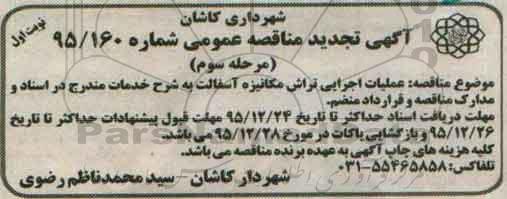 شهرداری کاشان
نوبت اول
آگهی تجدید مناقصه عمومی شماره ۹۵/۱۶۰
(مرحله سوم)
موضوع مناقصه: عملیات اجرایی تراش مکانیزه آسفالت به شرح خدمات مندرج در اسناد و
مدارک مناقصه و قرارداد منضم.
مهلت دریافت اسناد حداکثر تا تاریخ ۹۵/۱۲/۲۴ مهلت قبول پیشنهادات حداکثر تا تاریخ
۹۵/۱۲/۲۶ و بازگشایی پاکات در مورخ ۹۵/۱۲/۲۸ می باشد.
کلیه هزینه های چاپ آگهی به عهده برنده مناقصه می باشد.
تلفاکس: ۵۵۴۶۵۸۵۸-۰۳۱
شهردار کاشان - سید محمد ناظم رضوی